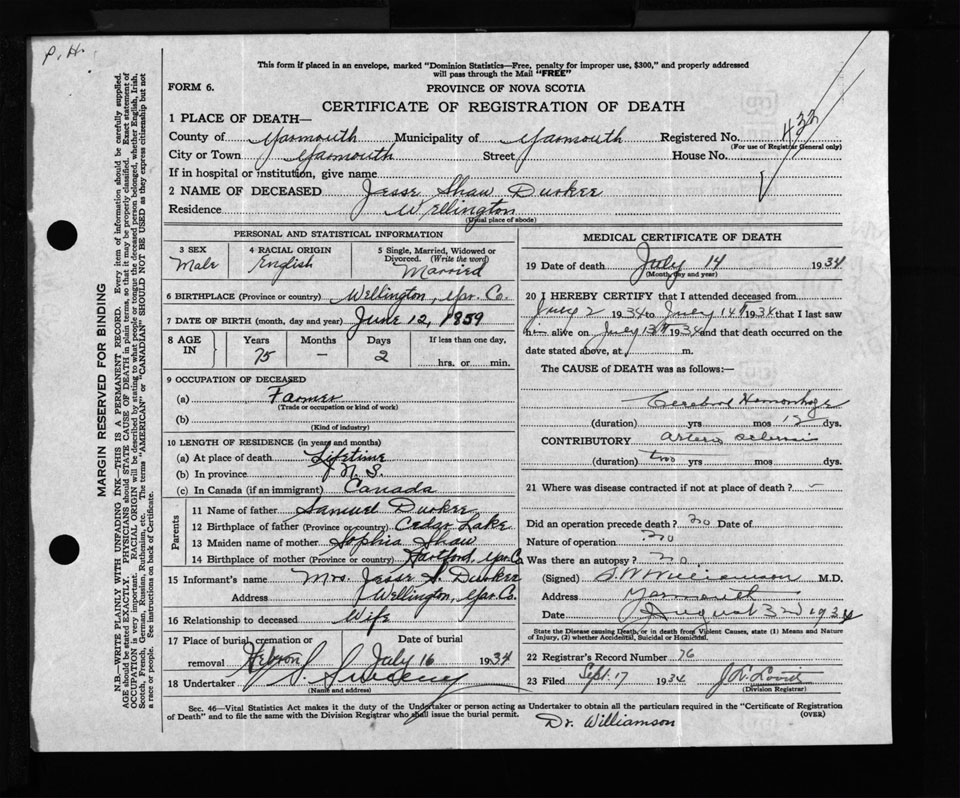 P. H.
This form if placed in an envelope, marked "Dominion Statistics—Free, penalty for improper use, $300," and properly addressed
will pass through the Mail "FREE"
FORM 6.
PROVINCE OF NOVA SCOTIA
CERTIFICATE OF REGISTRATION OF DEATH
1 PLACE OF DEATH—
County of Yarmouth Municipality of Yarmouth Registered No.
(For use of Registrar General only)
City or Town Yarmouth Street House No.
If in hospital or institution, give name
2 NAME OF DECEASED Jesse Shaw Durkee
Residence Wellington
(Usual place of abode)
PERSONAL AND STATISTICAL INFORMATION
3 SEX Male
4 RACIAL ORIGIN English
5 Single, Married, Widowed or
Divorced. (Write the word)
Married
6 BIRTHPLACE (Province or country) Wellington, Yar. Co.
7 DATE OF BIRTH (month, day and year) June 12, 1859
8 AGE IN Years 75 Months — Days 2 If less than one day,
hrs. or min.
9 OCCUPATION OF DECEASED
(a) Farmer
(Trade or occupation or kind of work)
(b)
(Kind of industry)
10 LENGTH OF RESIDENCE (in years and months)
(a) At place of death Lifetime
(b) In province N. S.
(c) In Canada (if an immigrant) Canada
Parents
11 Name of father Samuel Durkee
12 Birthplace of father (Province or country) Cedar Lake
13 Maiden name of mother Sophia Shaw
14 Birthplace of mother (Province or country) Hartford, Yar. Co.
15 Informant's name Mrs. Jesse S. Durkee
Address Wellington, Yar. Co.
16 Relationship to deceased Wife
17 Place of burial, cremation or Date of burial
removal Hebron July 16 1934
18 Undertaker S. Sweeny
(Name and address)
MEDICAL CERTIFICATE OF DEATH
19 Date of death July 14 1934
(Month, day and year)
20 I HEREBY CERTIFY that I attended deceased from
July 2 1934 to July 14th 1934 that I last saw
him alive on July 13th 1934 and that death occurred on the
date stated above, at m.
The CAUSE of DEATH was as follows:—
Cerebral Hemorrhage
(duration) yrs mos 12 dys.
CONTRIBUTORY Arterio sclerosis
(duration) two yrs mos dys.
21 Where was disease contracted if not at place of death? –
Did an operation precede death? no Date of
Nature of operation no
Was there an autopsy? no
(Signed) Williamson M.D.
Address Yarmouth
Date August 3rd 1934
State the Disease causing Death, or in death from Violent Causes, state (1) Means and Nature
of Injury, (2) whether Accidental, Suicidal or Homicidal.
22 Registrar's Record Number 76
23 Filed Sept. 17 1934
(Division Registrar)
Sec. 46—Vital Statistics Act makes it the duty of the Undertaker or person acting as Undertaker to obtain all the particulars required in the "Certificate of Registration
of Death" and to file the same with the Division Registrar who shall issue the burial permit. (OVER)
Dr. Williamson
MARGIN RESERVED FOR BINDING
N.B.—WRITE PLAINLY WITH UNFADING INK—THIS IS A PERMANENT RECORD. Every item of information should be carefully supplied.
AGE should be stated EXACTLY. PHYSICIANS should STATE CAUSE OF DEATH in plain terms, so that it may be properly classified. Exact statement of
OCCUPATION is very important. RACIAL ORIGIN will be described by stating to what people or tongue the deceased person belonged, whether English, Irish,
Scotch, French, German, Russian, Ruthenian, etc. The terms "AMERICAN" or "CANADIAN" SHOULD NOT BE USED as they express citizenship but not
a race or people. See instructions on back of Certificate.